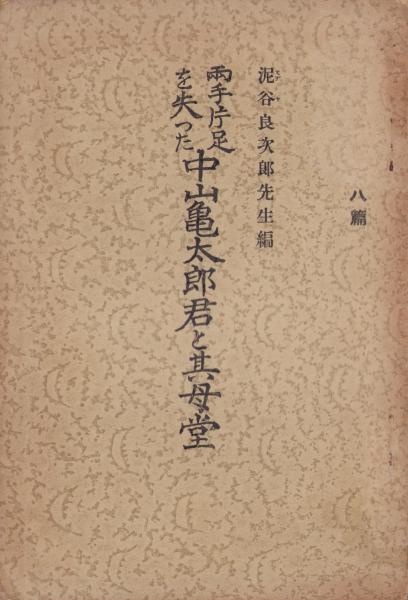 八篇
泥谷良次郎先生編
両手片足を失つた
中山亀太郎君と其母堂